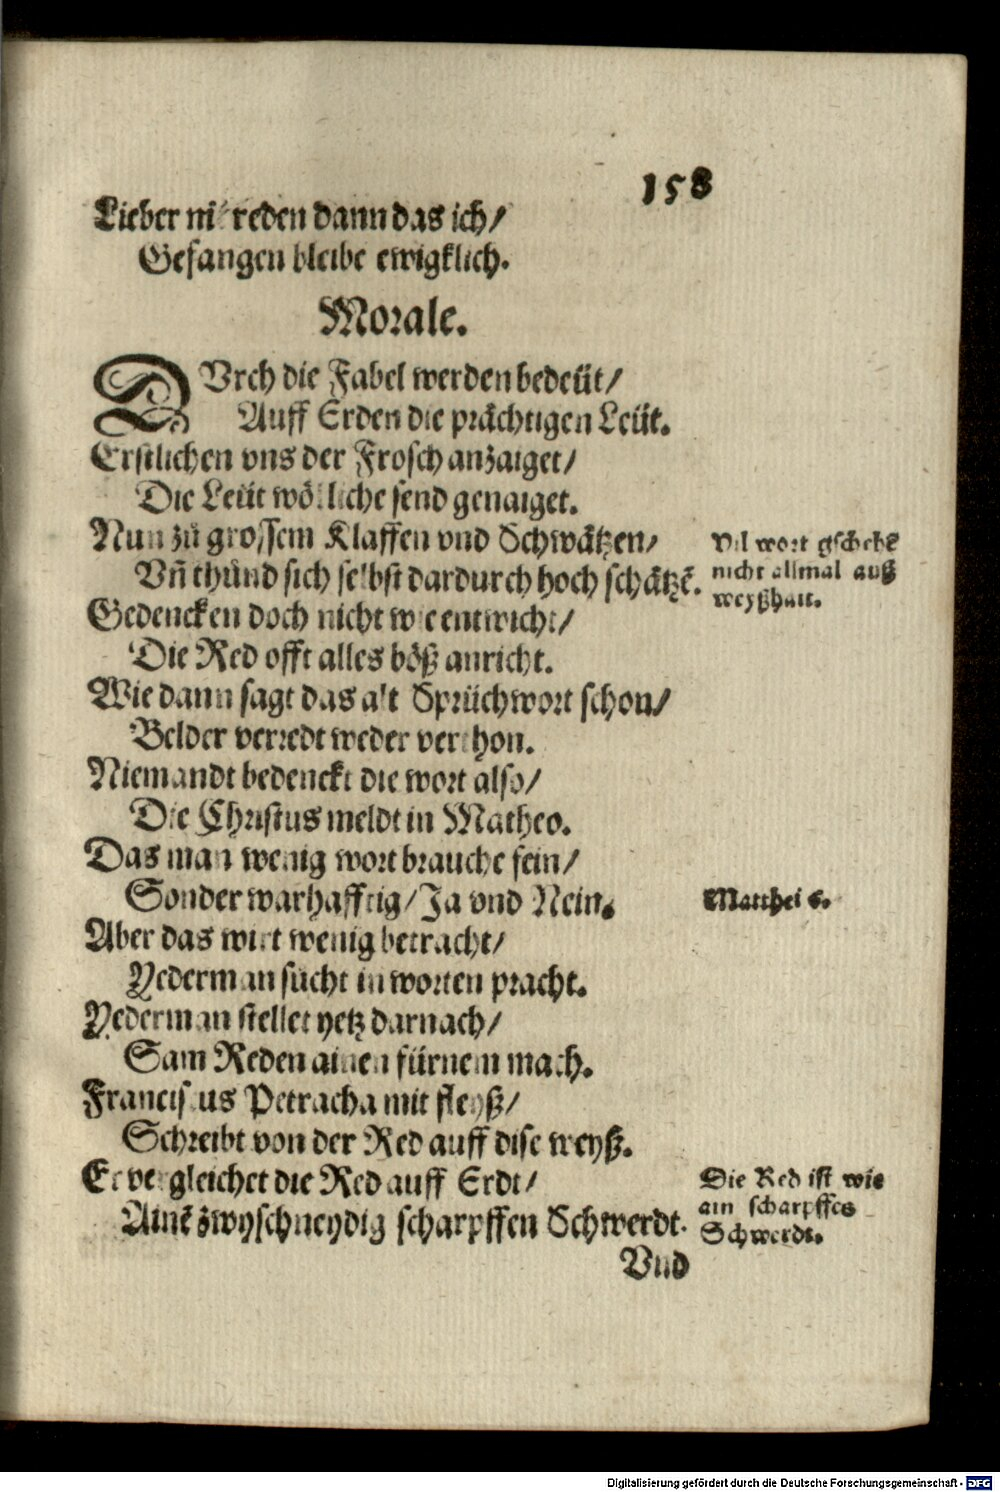 158
Lieber nit reden dann das ich/
Gefangen bleibe ewigklich.
Morale.
DUrch die Fabel werden bedeüt/
Auff Erden die prächtigen Leüt.
Erstlichen vns der Frosch anzaiget/
Die Leüt wölliche send genaiget.
Nun zů grossem Klaffen vnd Schwätzen/
Vñ thůnd sich selbst dardurch hoch schätzẽ.
Vil wort gschehẽ
nicht allmal auß
weyßhait.
Gedencken doch nicht wie entwicht/
Die Red offt alles böß anricht.
Wie dann sagt das alt Sprüchwort schon/
Belder verredt weder verthon.
Niemandt bedenckt die wort also/
Die Christus meldt in Matheo.
Das man wenig wort brauche fein/
Sonder warhafftig/ Ja vnd Nein.
Matthei 6.
Aber das wirt wenig betracht/
Yederman sucht in worten pracht.
Yederman stellet yetz darnach/
Sam Reden ainen fürnem mach.
Franciscus Petracha mit fleyß/
Schreibt von der Red auff dise weyß.
Er vergleichet die Red auff Erdt/
Ainẽ zwyschneydig scharpffen Schwerdt.
Die Red ist wie
ain scharpffes
Schwerdt.
Vnd
Digitalisierung gefördert durch die Deutsche Forschungsgemeinschaft - DFG